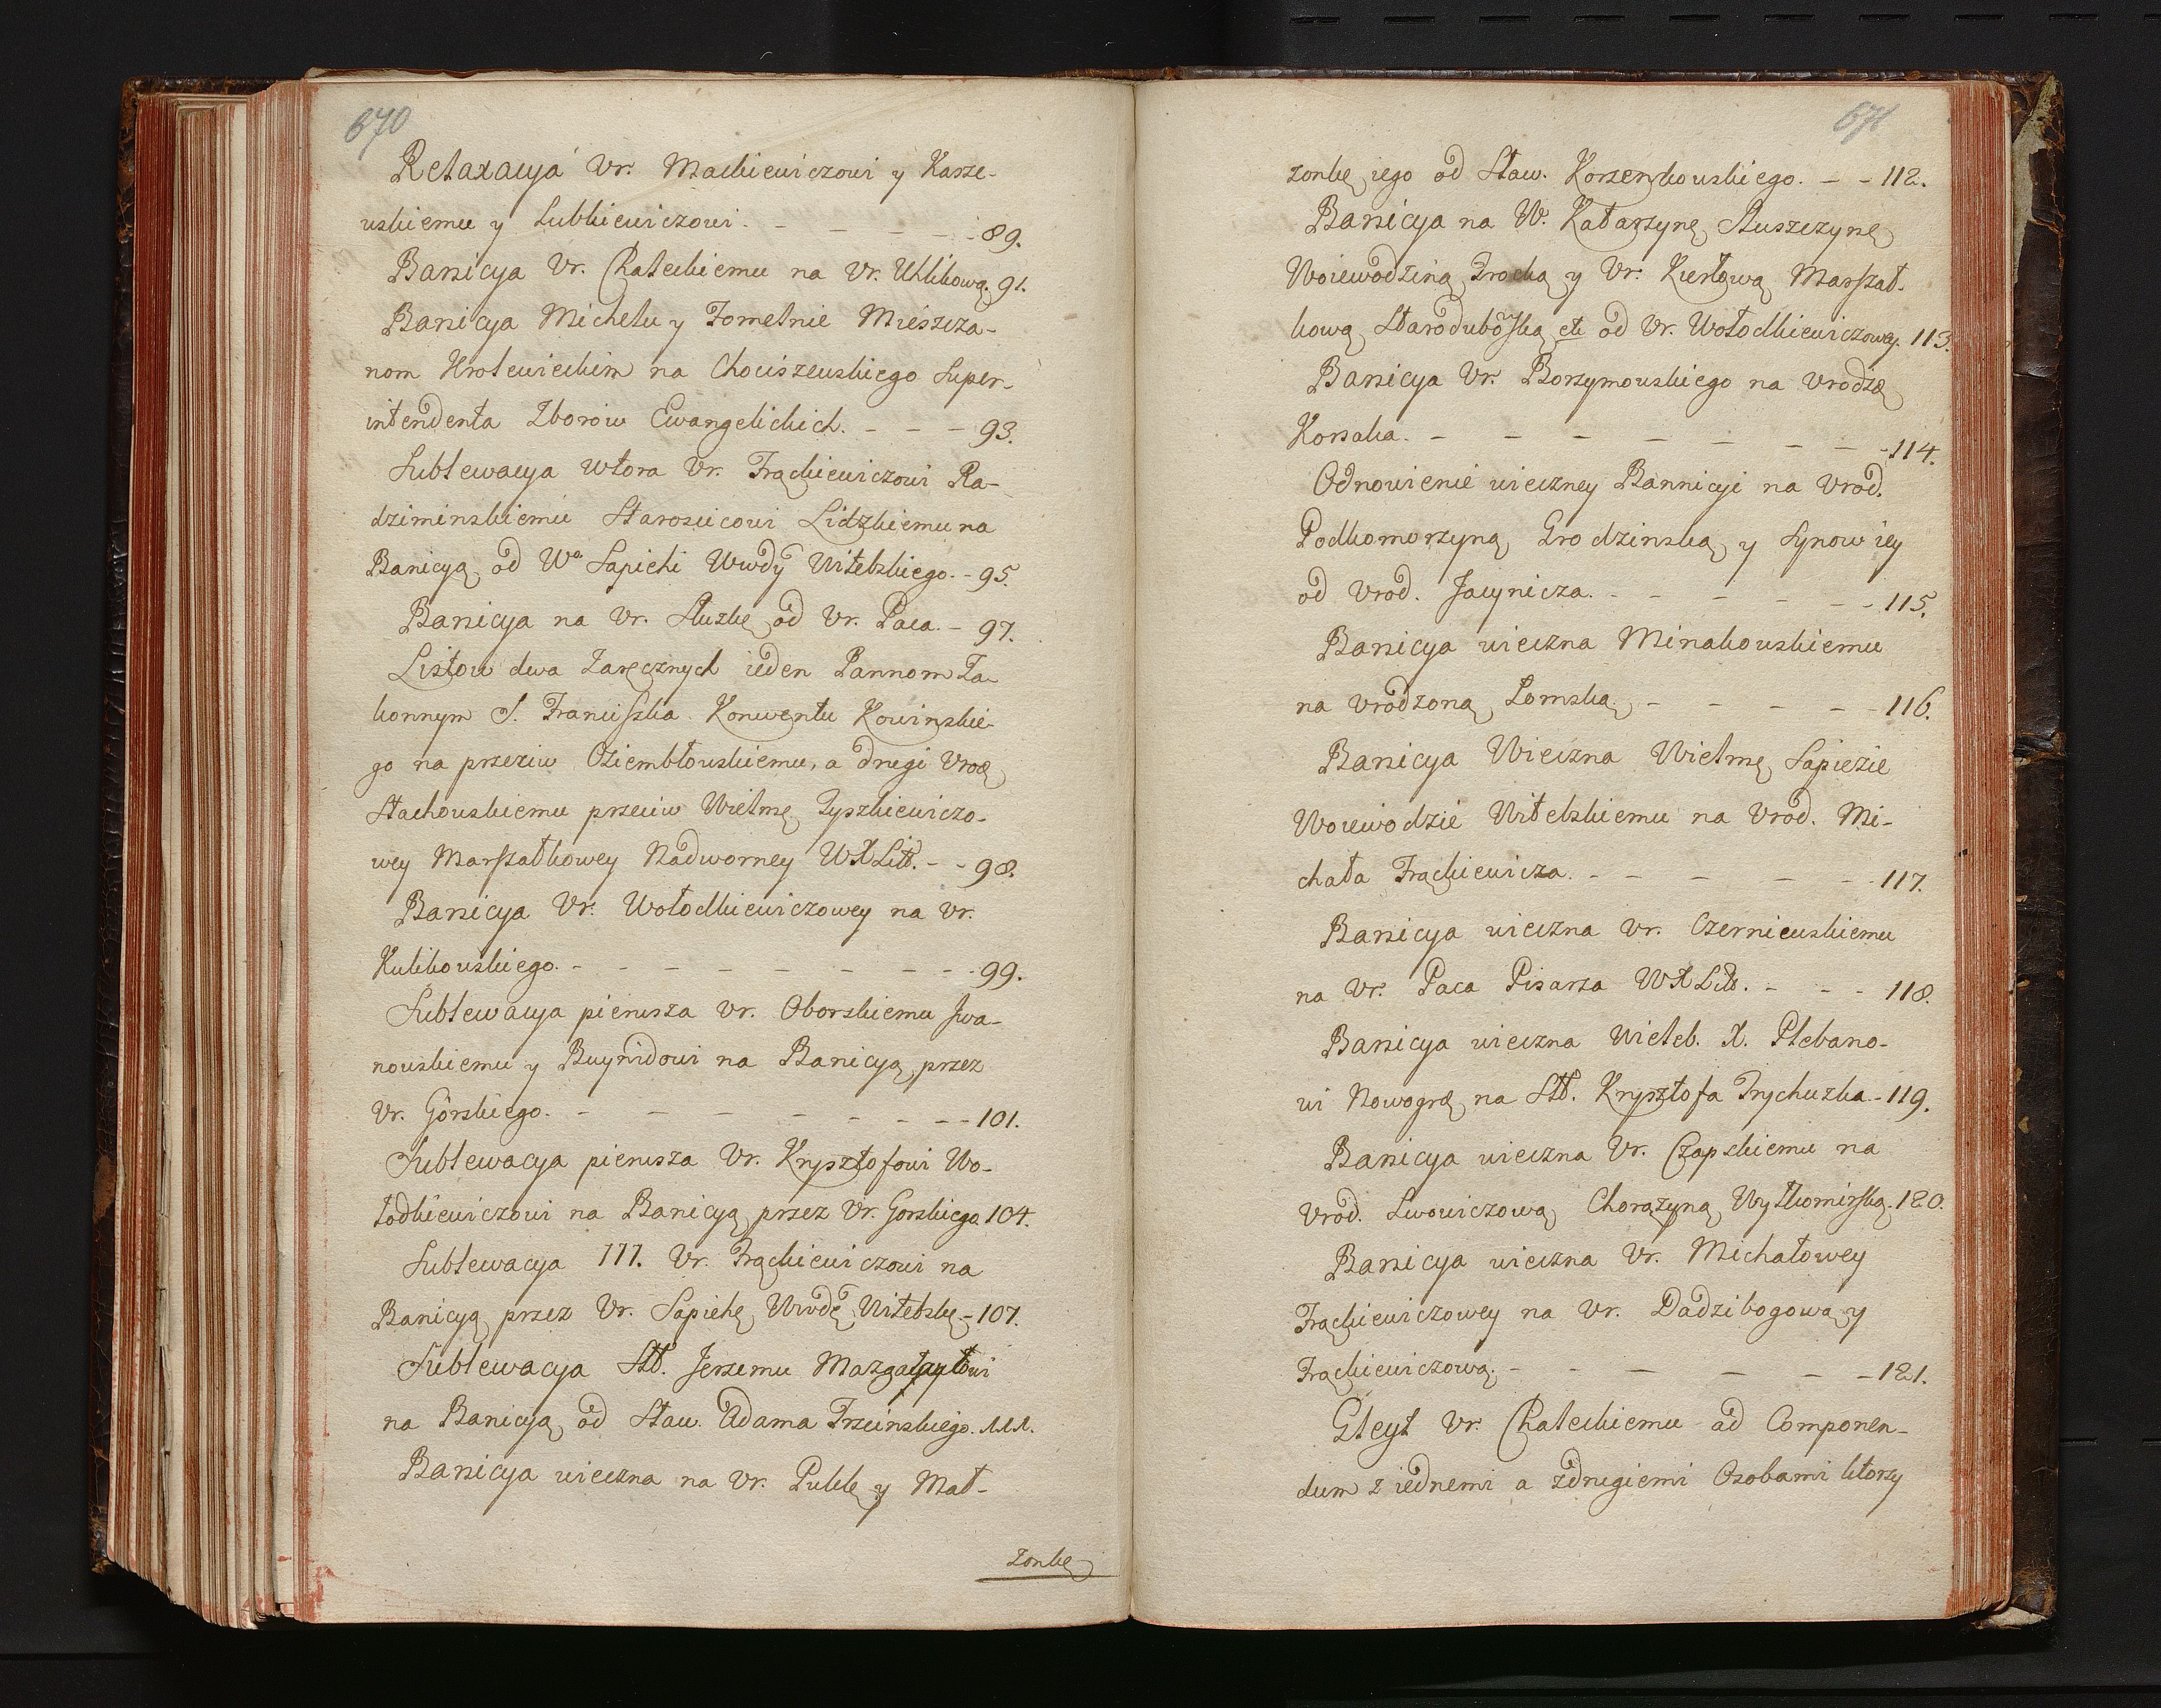 670
Relaxacya Vr. Mackiewiczowi y Karze-
wskiemu y Lubkiewiczowi. - - - - - 89.
Banicya Vr. Chaleckiemu na Vr. Uklikową. 91.
Banicya Michelu y Jomelnie Mieszcza-
nom Krolewieckim na Chociszewskiego Super-
intendenta Zborow Ewangelickich. - - - 93.
Sublewacya wtora Vr. Frąckiewiczowi Ra-
dziminskiemu Starosicowi Lidzkiemu na
Banicyą od Wo Sapiehi Wwdy Witebskiego. - 95.
Banicya na Vr. Służkę od Vr. Paca. - 97.
Listow dwa Zaręcznych ieden Pannom Za-
konnym S. Franciszka Konwentu Kowinskie-
go na przeciw Oziembłowskiemu, a drugi Vrod
Stachowskiemu przeciw Wielmę Tyszkiewiczo-
wey Marszałkowey Nadworney WXLitt. - - 98.
Banicya Vr. Wołodkiewiczowey na Vr.
Kulikowskiego. - - - - - - - - 99.
Sublewacya pierwsza Vr. Oborskiemu Jwa-
nowskiemu y Buynidowi na Banicyą przez
Vr. Górskiego. - - - - - - - 101.
Sublewacya pierwsza Vr. Krysztofowi Wo-
łodkiewiczowi na Banicyą przez Vr. Gorskiego 104.
Sublewacya III. Vr. Frąckiewiczowi na
Banicyą przez Vr. Sapiehę Wwdę Witebskę - 107.
Sublewacya Stt. Jerzemu
na Banicyą od Staw. Adama Trzcinskiego. 111.
Banicya wieczna na Vr. Pukkę y Mał-
żonkę
671
żonkę iego od Staw. Korzenkowskiego. - - 112.
Banicya na W. Katarzynę Słuszczynę
Woiewodziną Trocką y Vr. Kierłową Marszał-
kową Starodubowską etc od Vr. Wołodkiewiczowey. 113.
Banicya Vr. Borzymowskiego na Vrodzę
Korsaka. - - - - - - - 114.
Odnowienie wieczney Bannicyi na Vrod.
Podkomorzyną Grodzinską y Synow iey
od Vrod. Jacynicza. - - - - - - 115.
Banicya wieczna Minakowskiemu
na Vrodzoną Lomską - - - - - 116.
Banicya Wieczna Wielmę Sapiezie
Woiewodzie Witebskiemu na Vrod. Mi-
chała Frąckiewicza. - - - - - 117.
Banicya wieczna Vr. Czerniewskiemu
na Vr. Paca Pisarza WXLitt. - - - 118.
Banicya wieczna Wieleb. X. Plebano-
wi Nowogrd na Stt. Krysztofa Prychuzka - 119.
Banicya wieczna Vr. Czapskiemu na
Vrod. Lwowiczową Chorążyną Wyłkomirską. 120.
Banicya wieczna Vr. Michałowey
Frąckiewiczowey na Vr. Dadzibogową y
Frąckiewiczową. - - - - - - 121.
Gleyt Vr. Chaleckiemu ad Componen-
dum z iednemi a zdrugiemi Osobami ktorzy